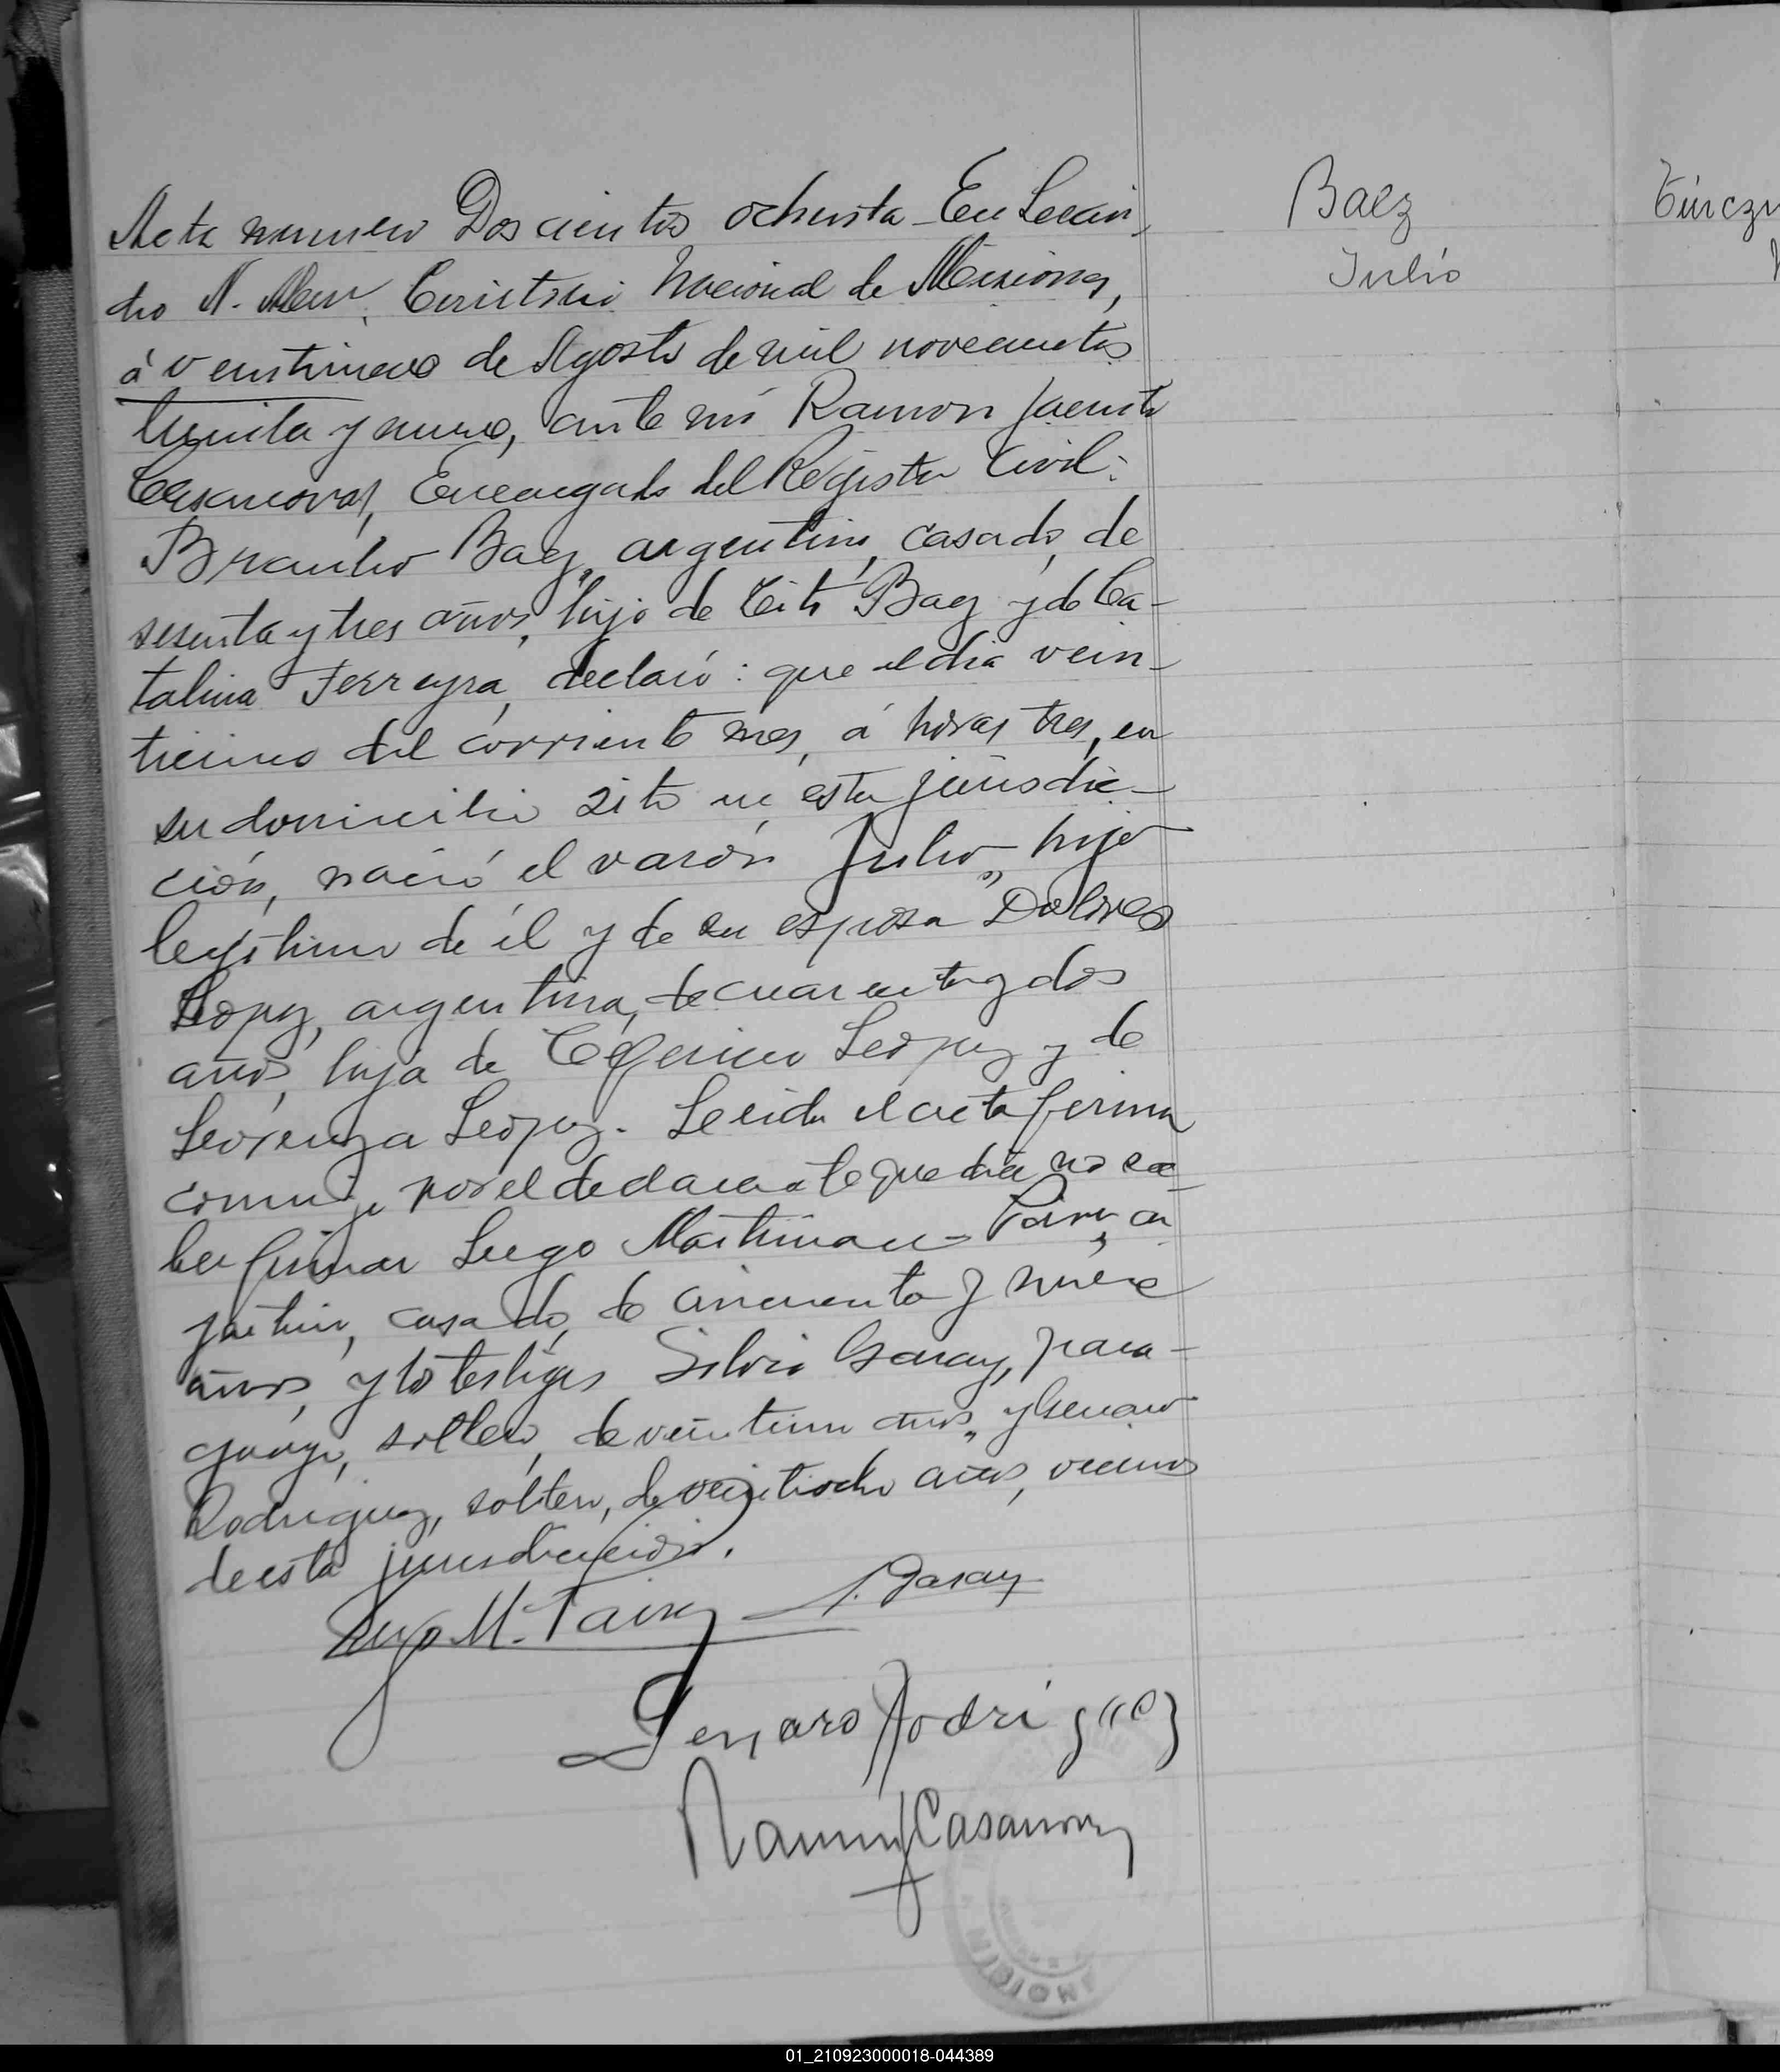 Acta numero Doscientos ochenta - En Lean-
dro N. Alem, Territorio Nacional de Misiones,
á veintinueve de Agosto de mil novecientos
treinta y nueve, ante mi Ramon Jacinto
Casanovas, Encargado del Registro Civil:
Braulio Baez, argentino, casado, de
sesenta y tres años, hijo de Tito Baez y de Ca-
talina Ferreyra, declaró: que el dia vein-
ticinco del corriente mes, á horas tres, en
su domicilio sito en esta jurisdic-
ción, nació el varón Julio, hijo
legitimo de él y de su esposa Dolores
Lopez, argentina, de cuarenta y dos
años, hija de Ceferino Lopez y de
Lorenza Lopez. Leida el acta firma
conmigo por el declarante que dice no sa-
ber firmar Lugo Martiniano
casado, de cincuenta y nueve
años, y los testigos Silvio Garay, para-
guayo, soltero, de veintiun años, y Genaro
Rodriguez, soltero, de veintiocho años, vecinos
de esta jurisdicción.
Lugo M. S. Garay
Genaro Rodriguez
Ramon J Casanovas
Baez
Julio
01_210923000018-044389